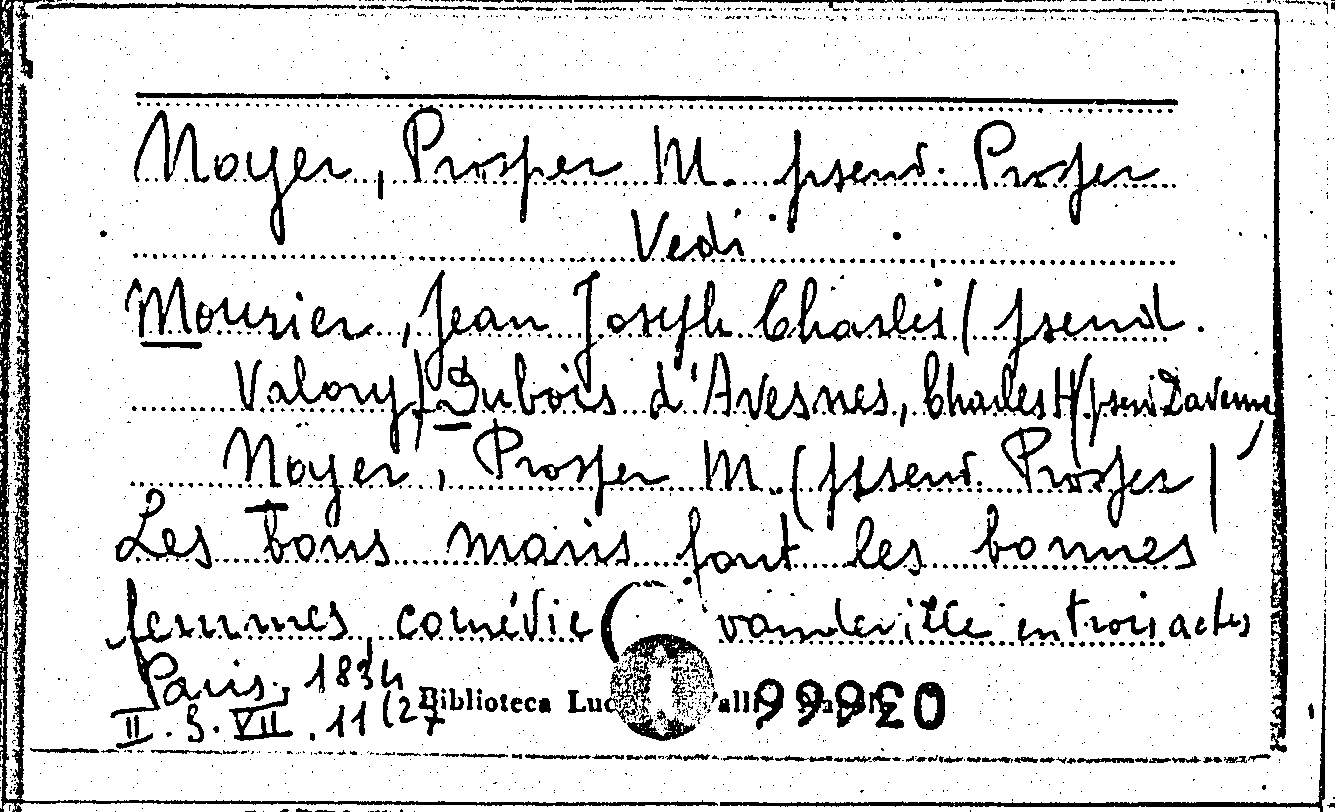 Noyer, Prosper M. pseud. Prosper
Vedi
Mourier, Jean Joseph Charles (pseud.
Valory) Dubois d'Avesnes, Charles H (pseud Davesne,
Noyer, Prosper M. (pseud. Prosper)
Les bons maris font les bonnes
femmes, comédie vaudeville en trois actes
Paris, 1834
Biblioteca
II. S. VII. 11 (27